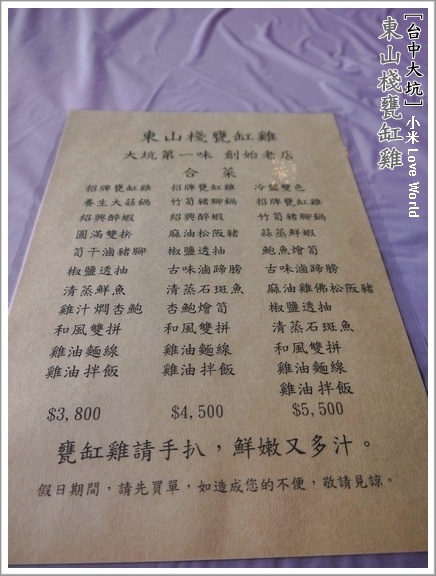 [台中大坑] 小米 Love World
東山棧甕缸雞
東山棧甕缸雞
大坑第一味 創始老店
合菜
招牌甕缸雞
養生大菇鍋
紹興醉蝦
圓滿雙拼
筍干滷豬腳
椒鹽透抽
清蒸鮮魚
雞汁燜杏鮑
和風雙拼
雞油麵線
雞油拌飯
$3,800
招牌甕缸雞
竹筍豬腳鍋
紹興醉蝦
麻油松阪豬
椒鹽透抽
古味滷蹄膀
清蒸石斑魚
杏鮑燴筍
和風雙拼
雞油麵線
雞油拌飯
$4,500
冷盤雙色
招牌甕缸雞
竹筍豬腳鍋
蒜蒸鮮蝦
鮑魚燴筍
古味滷蹄膀
麻油雞佛松阪豬
椒鹽透抽
清蒸石斑魚
和風雙拼
雞油麵線
雞油拌飯
$5,500
甕缸雞請手扒，鮮嫩又多汁。
假日期間，請先買單，如造成您的不便，敬請見諒。